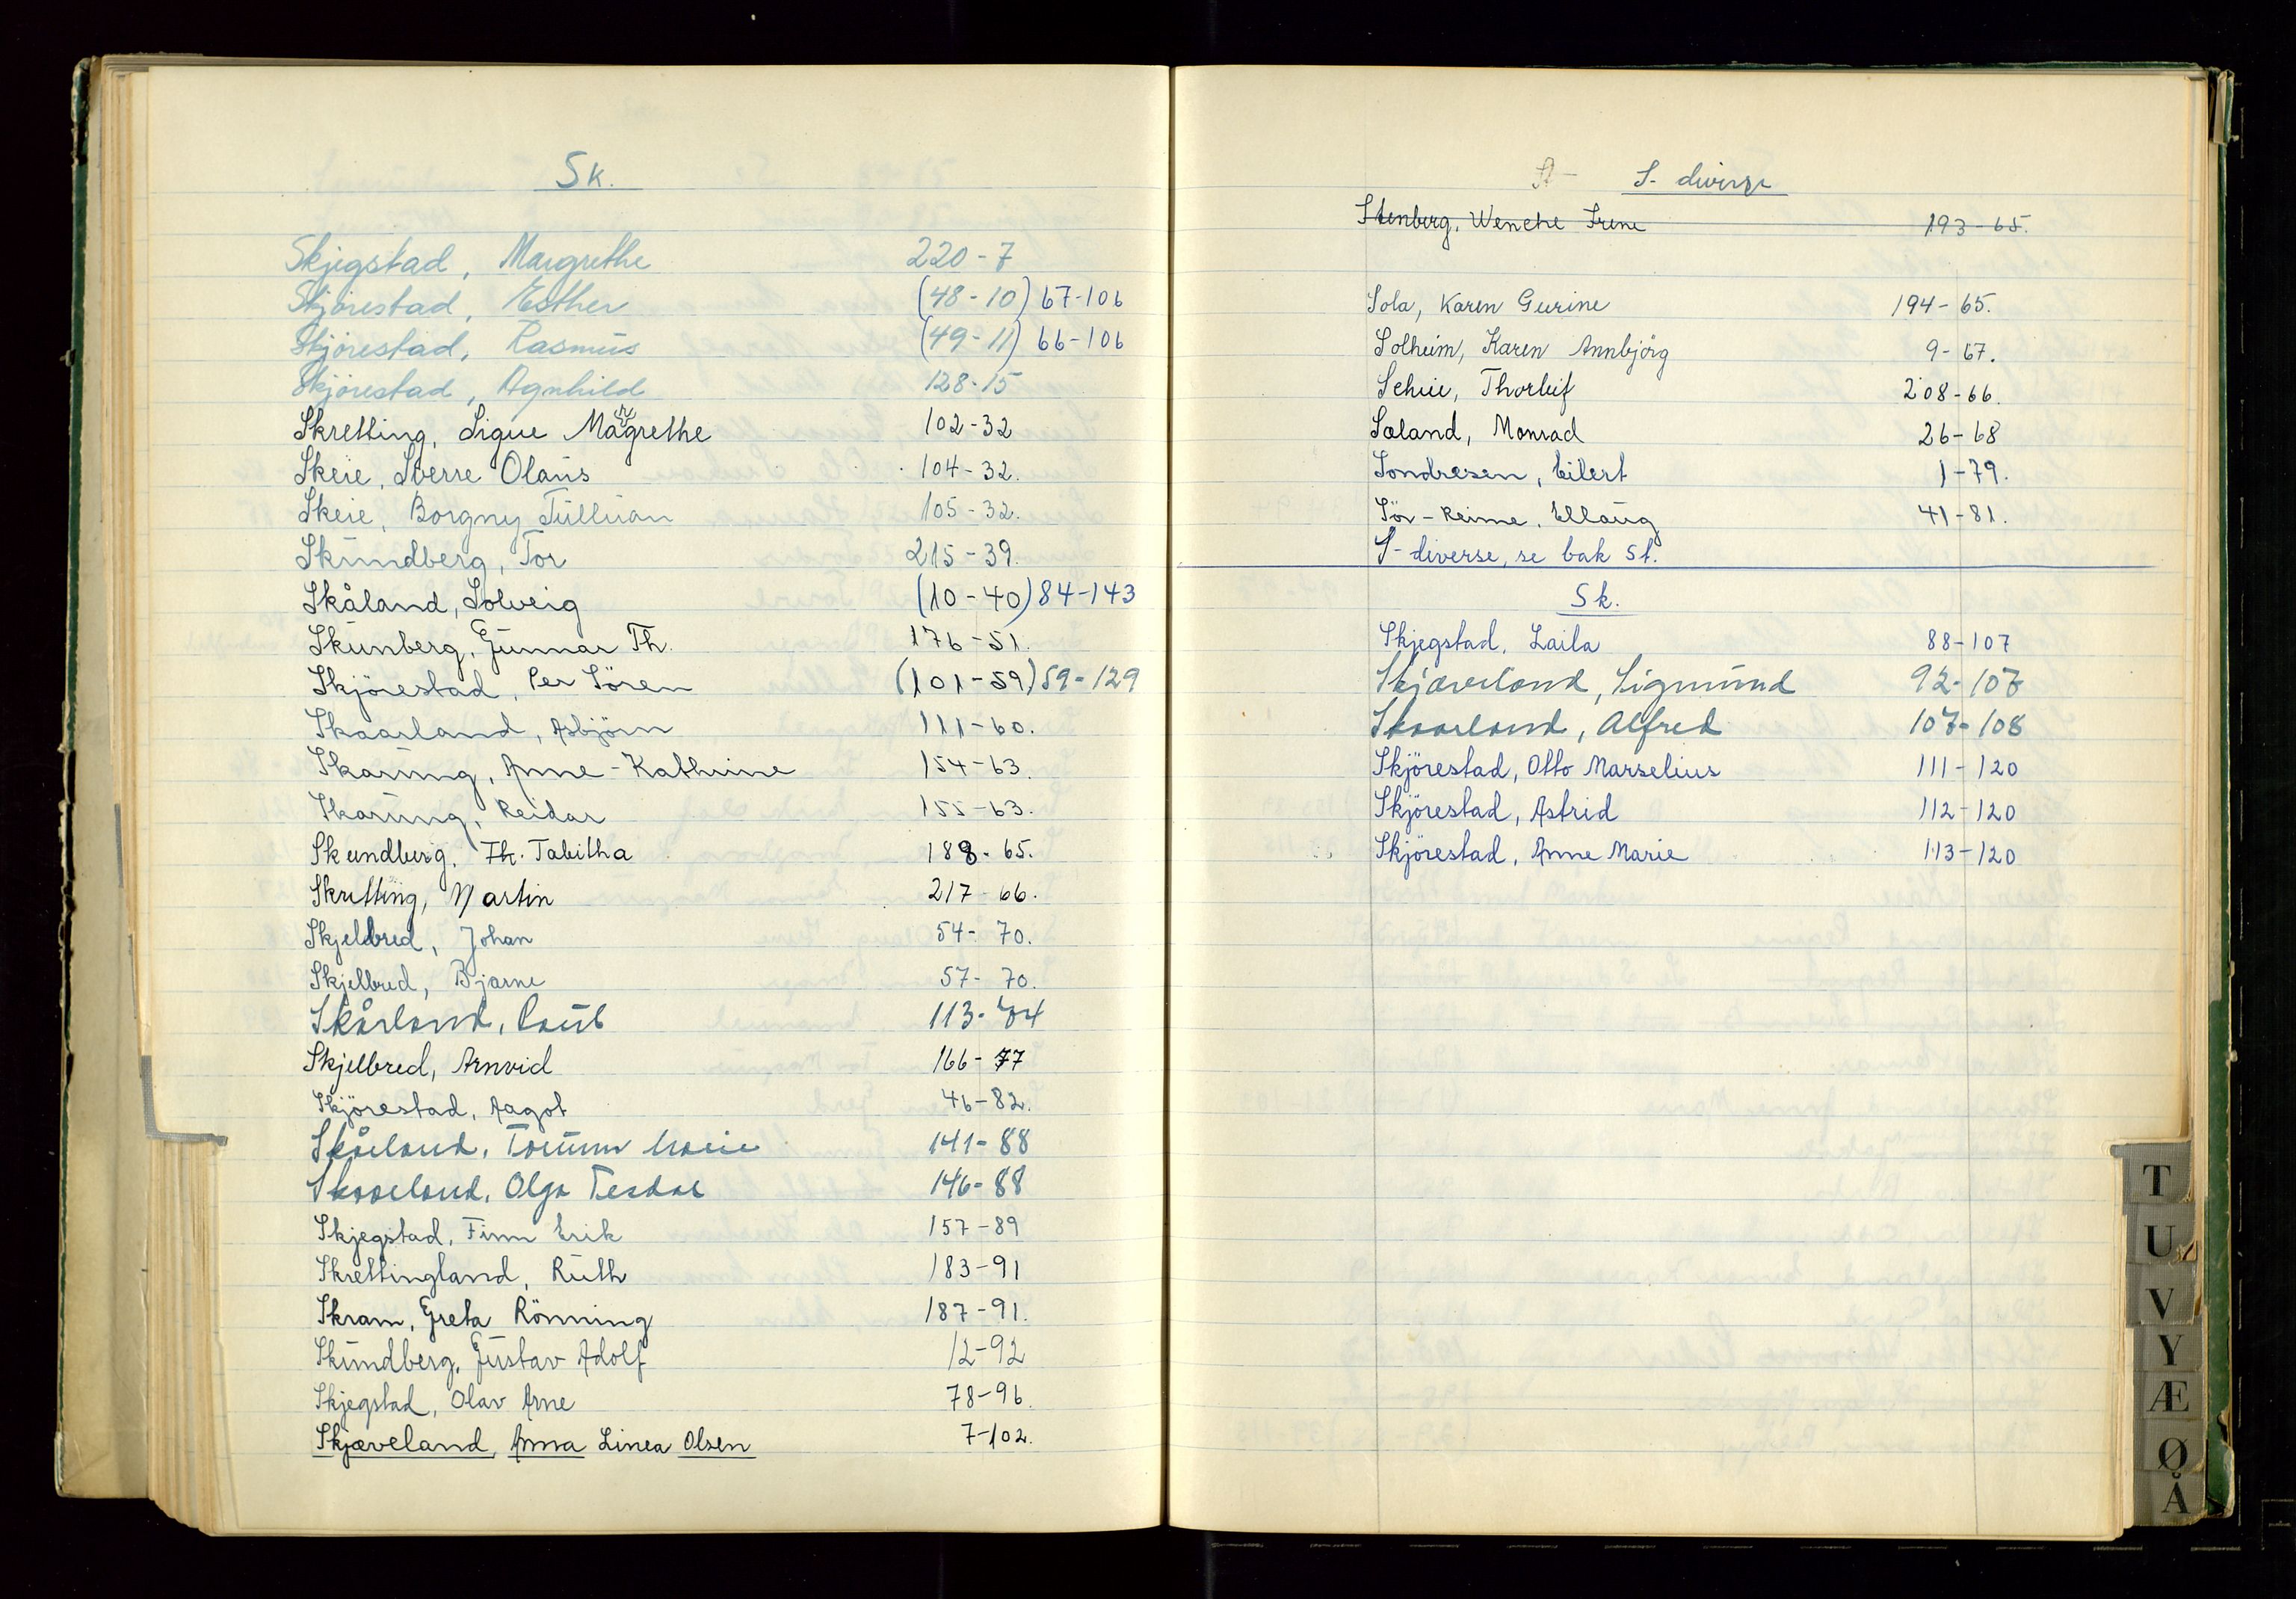 Sk.
Skjegstad, Margrethe 220-7
Skjörestad, Esther (48-10) 67-106
Skjörestad, Rasmus (49-11) 66-106
Skjörestad, Agnhild 128-15
Skretting, Signe Margrethe 102-32
Skeie, Sverre Olaus 104-32.
Skeie, Borgny Tulluan 105-32.
Skundberg, Tor 215-39.
Skåland, Solveig (10-40) 84-143
Skunberg, Gunnar Th. 176-51.
Skjörestad, Per Sören (101-59) 59-129
Skaarland, Asbjörn 111-60.
Skaring, Anne-Kathrine 154-63.
Skaring, Reidar 155-63.
Skundberg, Th. Tabitha 188-65.
Skretting, Martin 217-66.
Skjelbred, Johan 54-70.
Skjelbred, Bjarne 57-70.
Skårland, Paul 113-74
Skjelbred, Arnvid 166-77
Skjörestad, Aagot 46-82.
Skårland, Torunn Marie 141-88
Skaarland, Olga Tesdal 146-88
Skjegstad, Finn Erik 157-89
Skrettingland, Ruth 183-91
Skram, Greta Rönning 187-91.
Skundberg, Gustav Adolf 12-92
Skjegstad, Olav Arne 78-96.
Skjæveland, Anna Linea Olsen 7-102.
St- S- diverse
Stenberg, Wenche Irene 193-65.
Sola, Karen Gurine 194-65.
Solheim, Karen Annbjörg 9-67.
Sehie, Thorleif 208-66.
Soland, Monrad 26-68
Sondresen, Eilert 1-79.
Sör-Reime, Ellaug 41-81.
S-diverse, se bak St.
Sk.
Skjegstad, Laila 88-107
Skjæveland, Sigmund 92-107
Skaarland, Alfred 107-108
Skjörestad, Otto Marselius 111-120
Skjörestad, Astrid 112-120
Skjörestad, Anne Marie 113-120
T
U
V
Y
Æ
Ø
Å